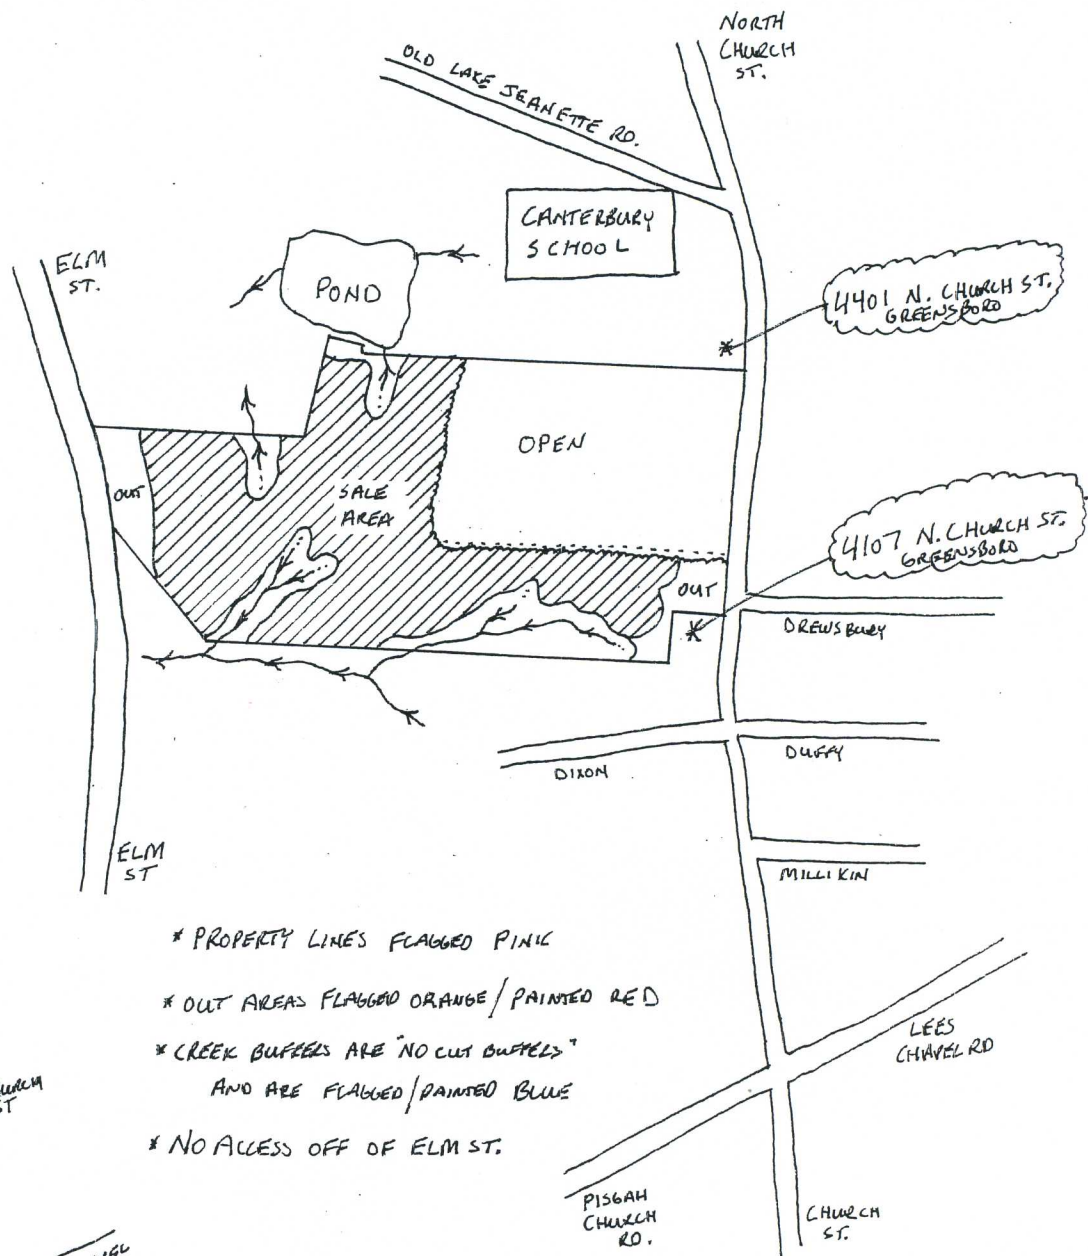 NORTH
CHURCH
ST.
OLD LAKE JEANETTE RD.
CANTERBURY
SCHOOL
ELM
ST.
POND
4401 N. CHURCH ST.
GREENSBORO
OPEN
OUT
SALE
AREA
4107 N. CHURCH ST.
GREENSBORO
OUT
DREWSBURY
DIXON
DUFFY
ELM
ST
MILLIKIN
* PROPERTY LINES FLAGGED PINK
* OUT AREAS FLAGGED ORANGE/PAINTED RED
* CREEK BUFFERS ARE "NO CUT BUFFERS"
AND ARE FLAGGED/PAINTED BLUE
* NO ACCESS OFF OF ELM ST.
LEES
CHAPEL RD
PISGAH
CHURCH
RD.
CHURCH
ST.
ST